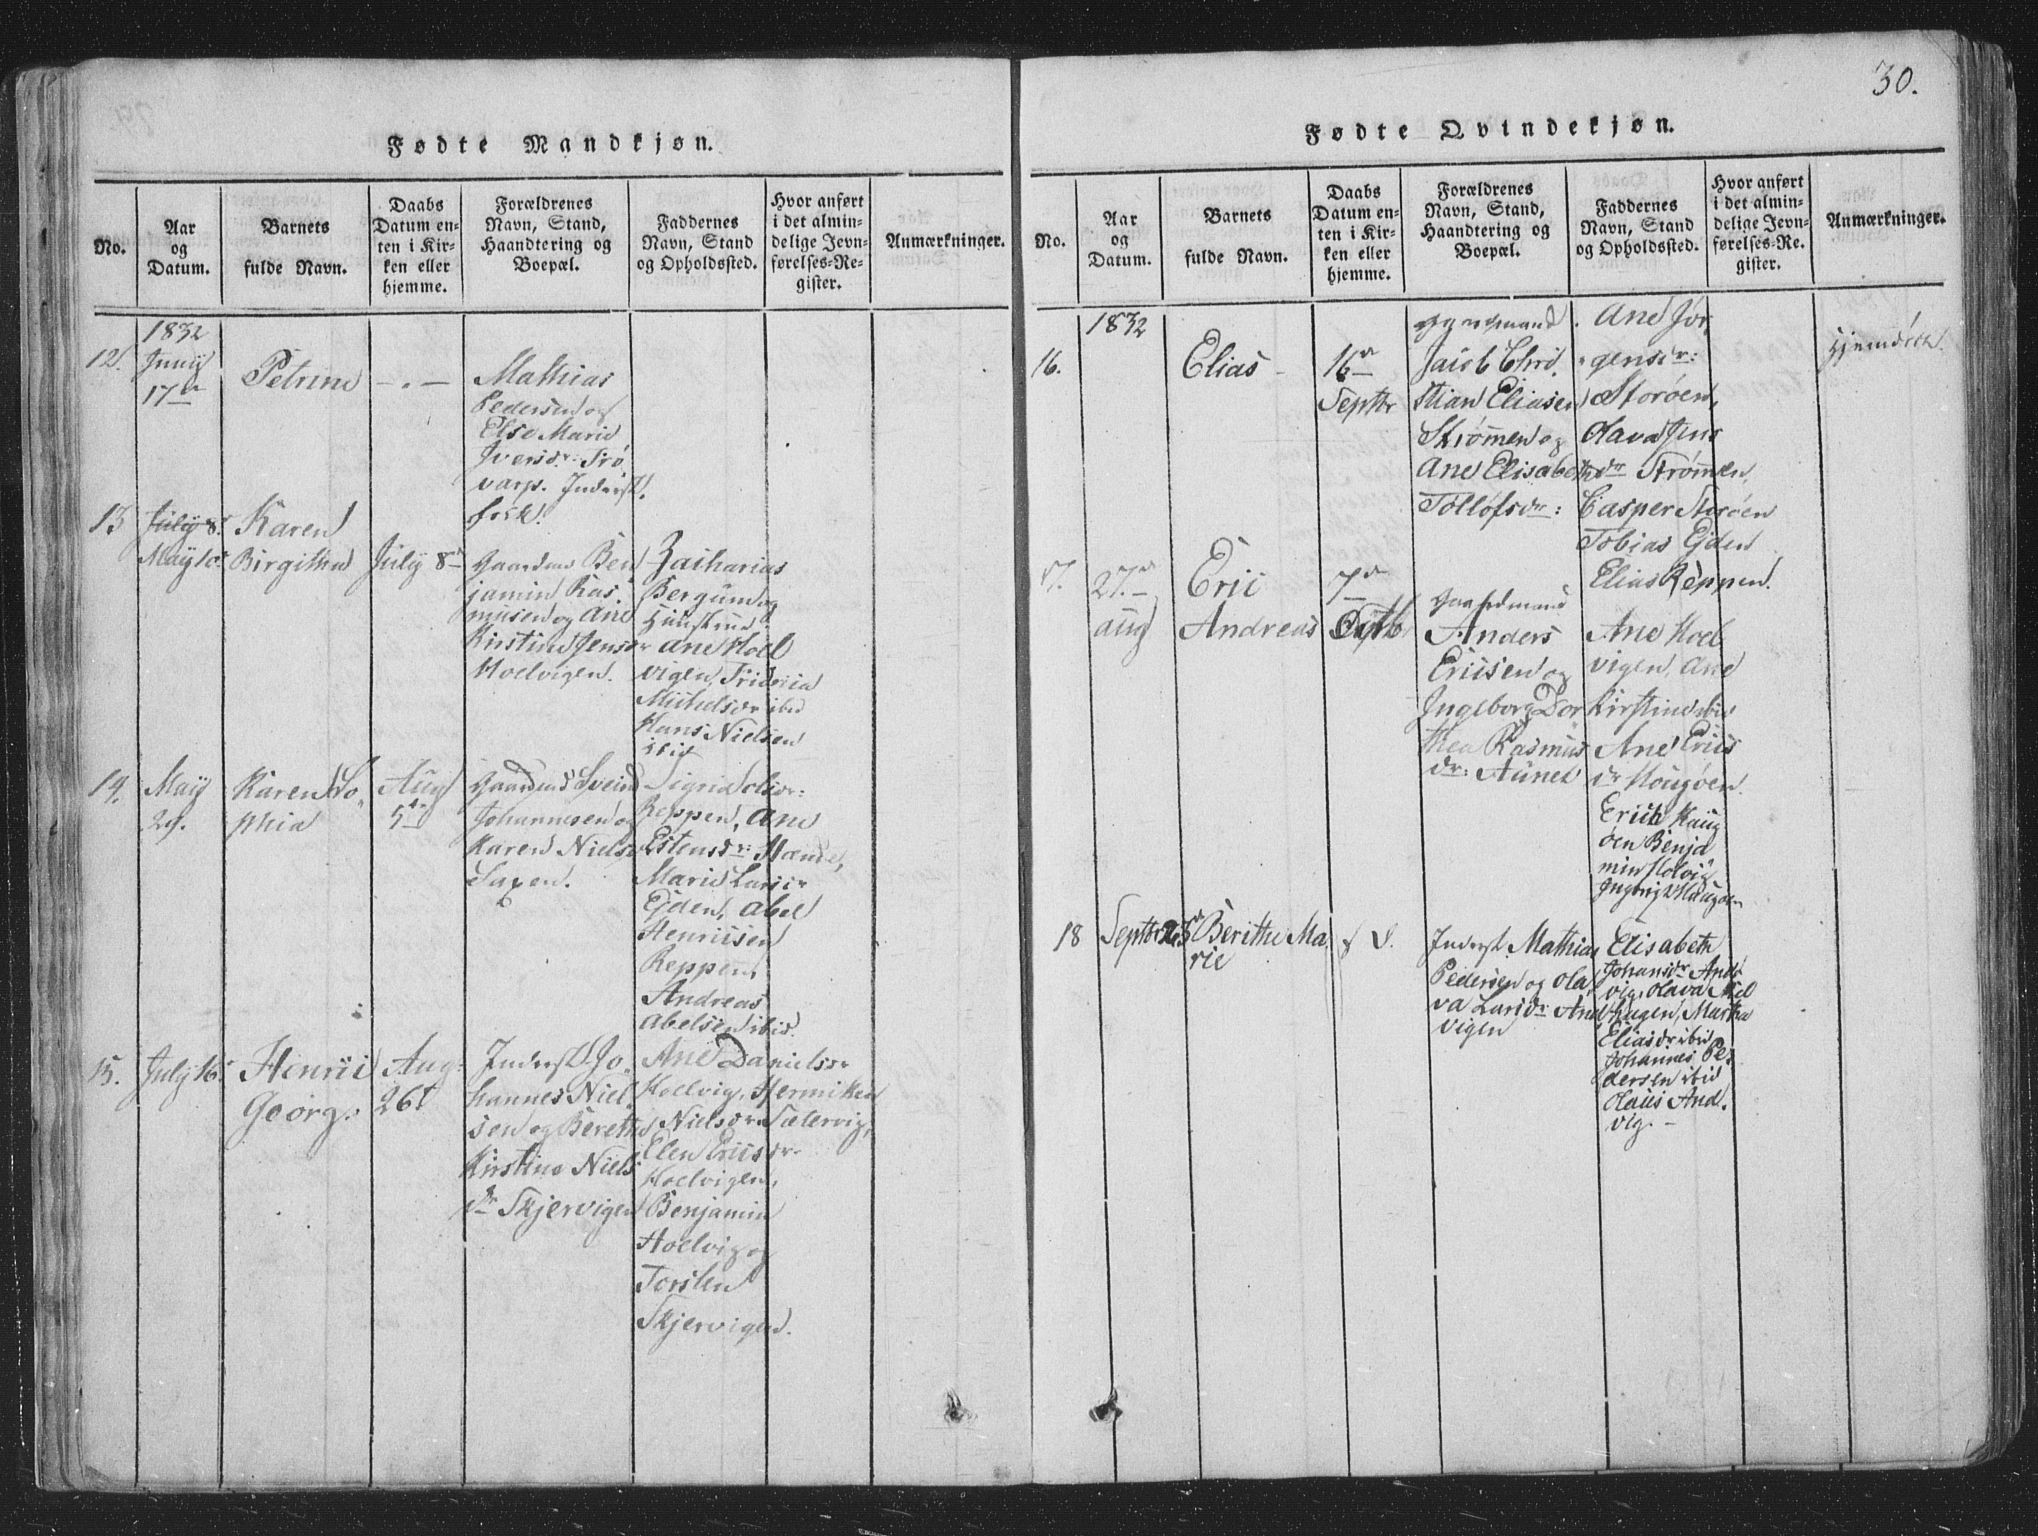 30.
Fødte Mandkjøn.
No.
Aar
og
Datum.
Barnets
fulde Navn.
Daabs
Datum en-
ten i Kir-
ken eller
hjemme.
Forældrenes
Navn, Stand,
Haandtering og
Boepæl.
Faddernes
Navn, Stand
og Opholdssted.
Hvor anført
i det almin-
delige Jevn-
førelses-Re-
gister.
Anmærkninger.
12.
1832
Juny
17de
Petrine
Mathias
Pedersen og
Else Marie
Iversdr:
varp. Inderst
folk.
13
July 8.
May 10
Karen
Birgitha
July 8
Gaardm Ben
jamin Ras
musen og Ane
Kirstine Jensdr
Hoelvigen.
Zacharias
Bergum og
Hustrue
Ane Hoel
vigen, Fridricia
Michelsdr ibid
Hans Nielsen
ibid
14.
May
29.
Karen So
phia
Aug
5te
Gaardmd Svein
Johannesen og
Karen Niels
Saxen.
Sigrid
Reppen, Ane
Estensdr:
Marie Larsdr
Ejden, Abel
Henricsen
Reppen,
Andreas
Abelsen ibid.
15.
July 16
Henric
Georg.
Aug.
26t
Inderst Jo
hannes Niel
sen og Berethe
Kirstine Niels
dr Skjervigen
Ane Danielsdr
Hoelvig, Hermiken
Nielsdr Sætervig,
Elen Ericsdr
Hoelvigen,
Benjamin
Hoelvig og
Torsten
Skjervigen.
Fødte Qvindekjøn.
No.
Aar
og
Datum.
Barnets
fulde Navn.
Daabs
Datum en-
ten i Kir-
ken eller
hjemme.
Forældrenes
Navn, Stand,
Haandtering og
Boepæl.
Faddernes
Navn, Stand
og Opholdssted.
Hvor anført
i det almin-
delige Jevn-
førelses-Re-
gister.
Anmærkninger.
16.
1832
Elias
16de
Septbr
Jacob Chri
stian Eliasen
Strømen og
Ane Elisabeth
Tollofsdr:
Ane Jør
gensdr:
Storøen,
Olava Jens
dr Strømen,
Casper Storøen
Tobias Ejden
Elias Reppen.
Hjemdøbt.
17.
27de
Aug
Eric
Andreas
7de
Octbr
Gaardmand
Anders
Ericsen og
Ingeborg Dor
thea Rasmus
dr: Aunet
Ane Hoel
vigen, Ane
Kirstine ibid
Ane Erics
dr Hougøen.
Erich Haug
øen Benja
min Holvig
Ingbrigt Haugøen
18
Septbr 23de
Berithe Ma
rie
Inderst Mathias
Pedersen og Ola
va Larsdr And
vigen
Elisabeth
Johansdr And
vig, Olava Mel
hugen, Martha
Eliasdr ibid
Johannes Pe
dersen ibid
Olaus And.
vig.